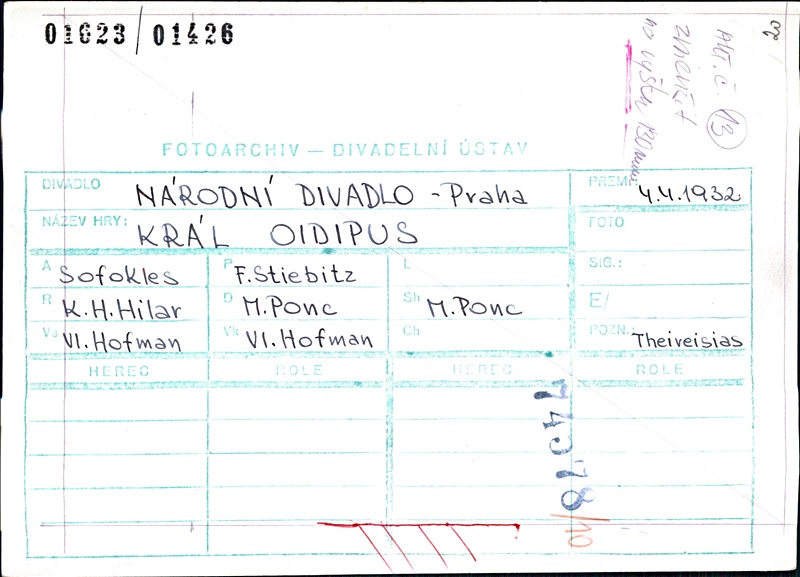 01623/01426
20
Alt. č. 13
zmenšit
na výšku 130mm
FOTOARCHIV — DIVADELNÍ ÚSTAV
DIVADLO NÁRODNÍ DIVADLO - Praha PREM. 4.4.1932
NÁZEV HRY: KRÁL OIDIPUS FOTO
A Sofokles P F. Stiebitz L SIG.:
R K.H.Hilar D M.Ponc Sh M.Ponc E/
Vs Vl. Hofman Vk Vl. Hofman Ch POZN.: Theiveisias
HEREC ROLE HEREC ROLE
/10